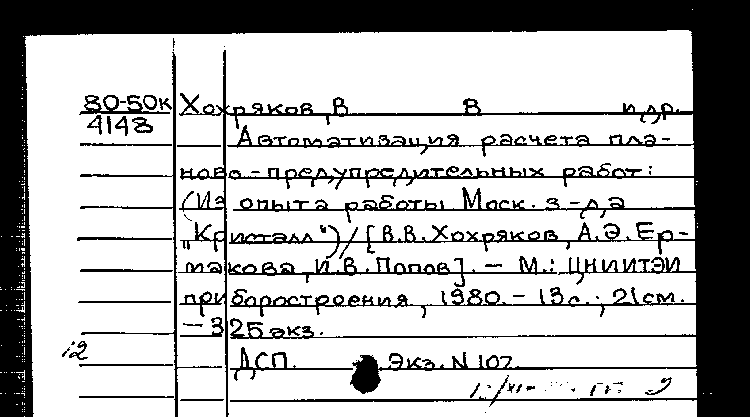 80-50к Хохряков, В В и др.
4148
Автоматизация расчета пла-
ново-предупредительных работ:
(Из опыта работы Моск. з-да
„Кристалл")/[В.В. Хохряков, А.Э. Ер-
макова, И.В. Попов]. — М.: ЦНИИТЭИ
приборостроения, 1980. - 13 с.; 21 см.
— 325 экз.
12
ДСП. Экз. N 107